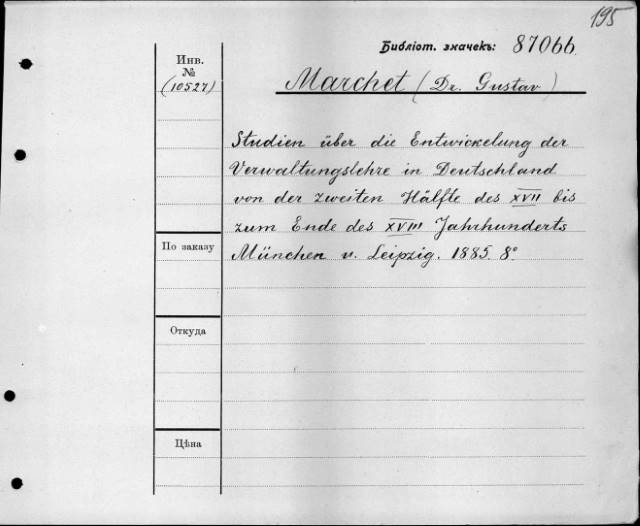 195
Библіот. значекъ: 87066
Инв.
№
(10527)
Marchet (Dr. Gustav)
Studien über die Entwickelung der
Verwaltungslehre in Deutschland
von der zweiten Hälfte des XVII bis
zum Ende des XVIII Jahrhunderts
München u. Leipzig. 1885. 8°
По заказу
Откуда
Цѣна